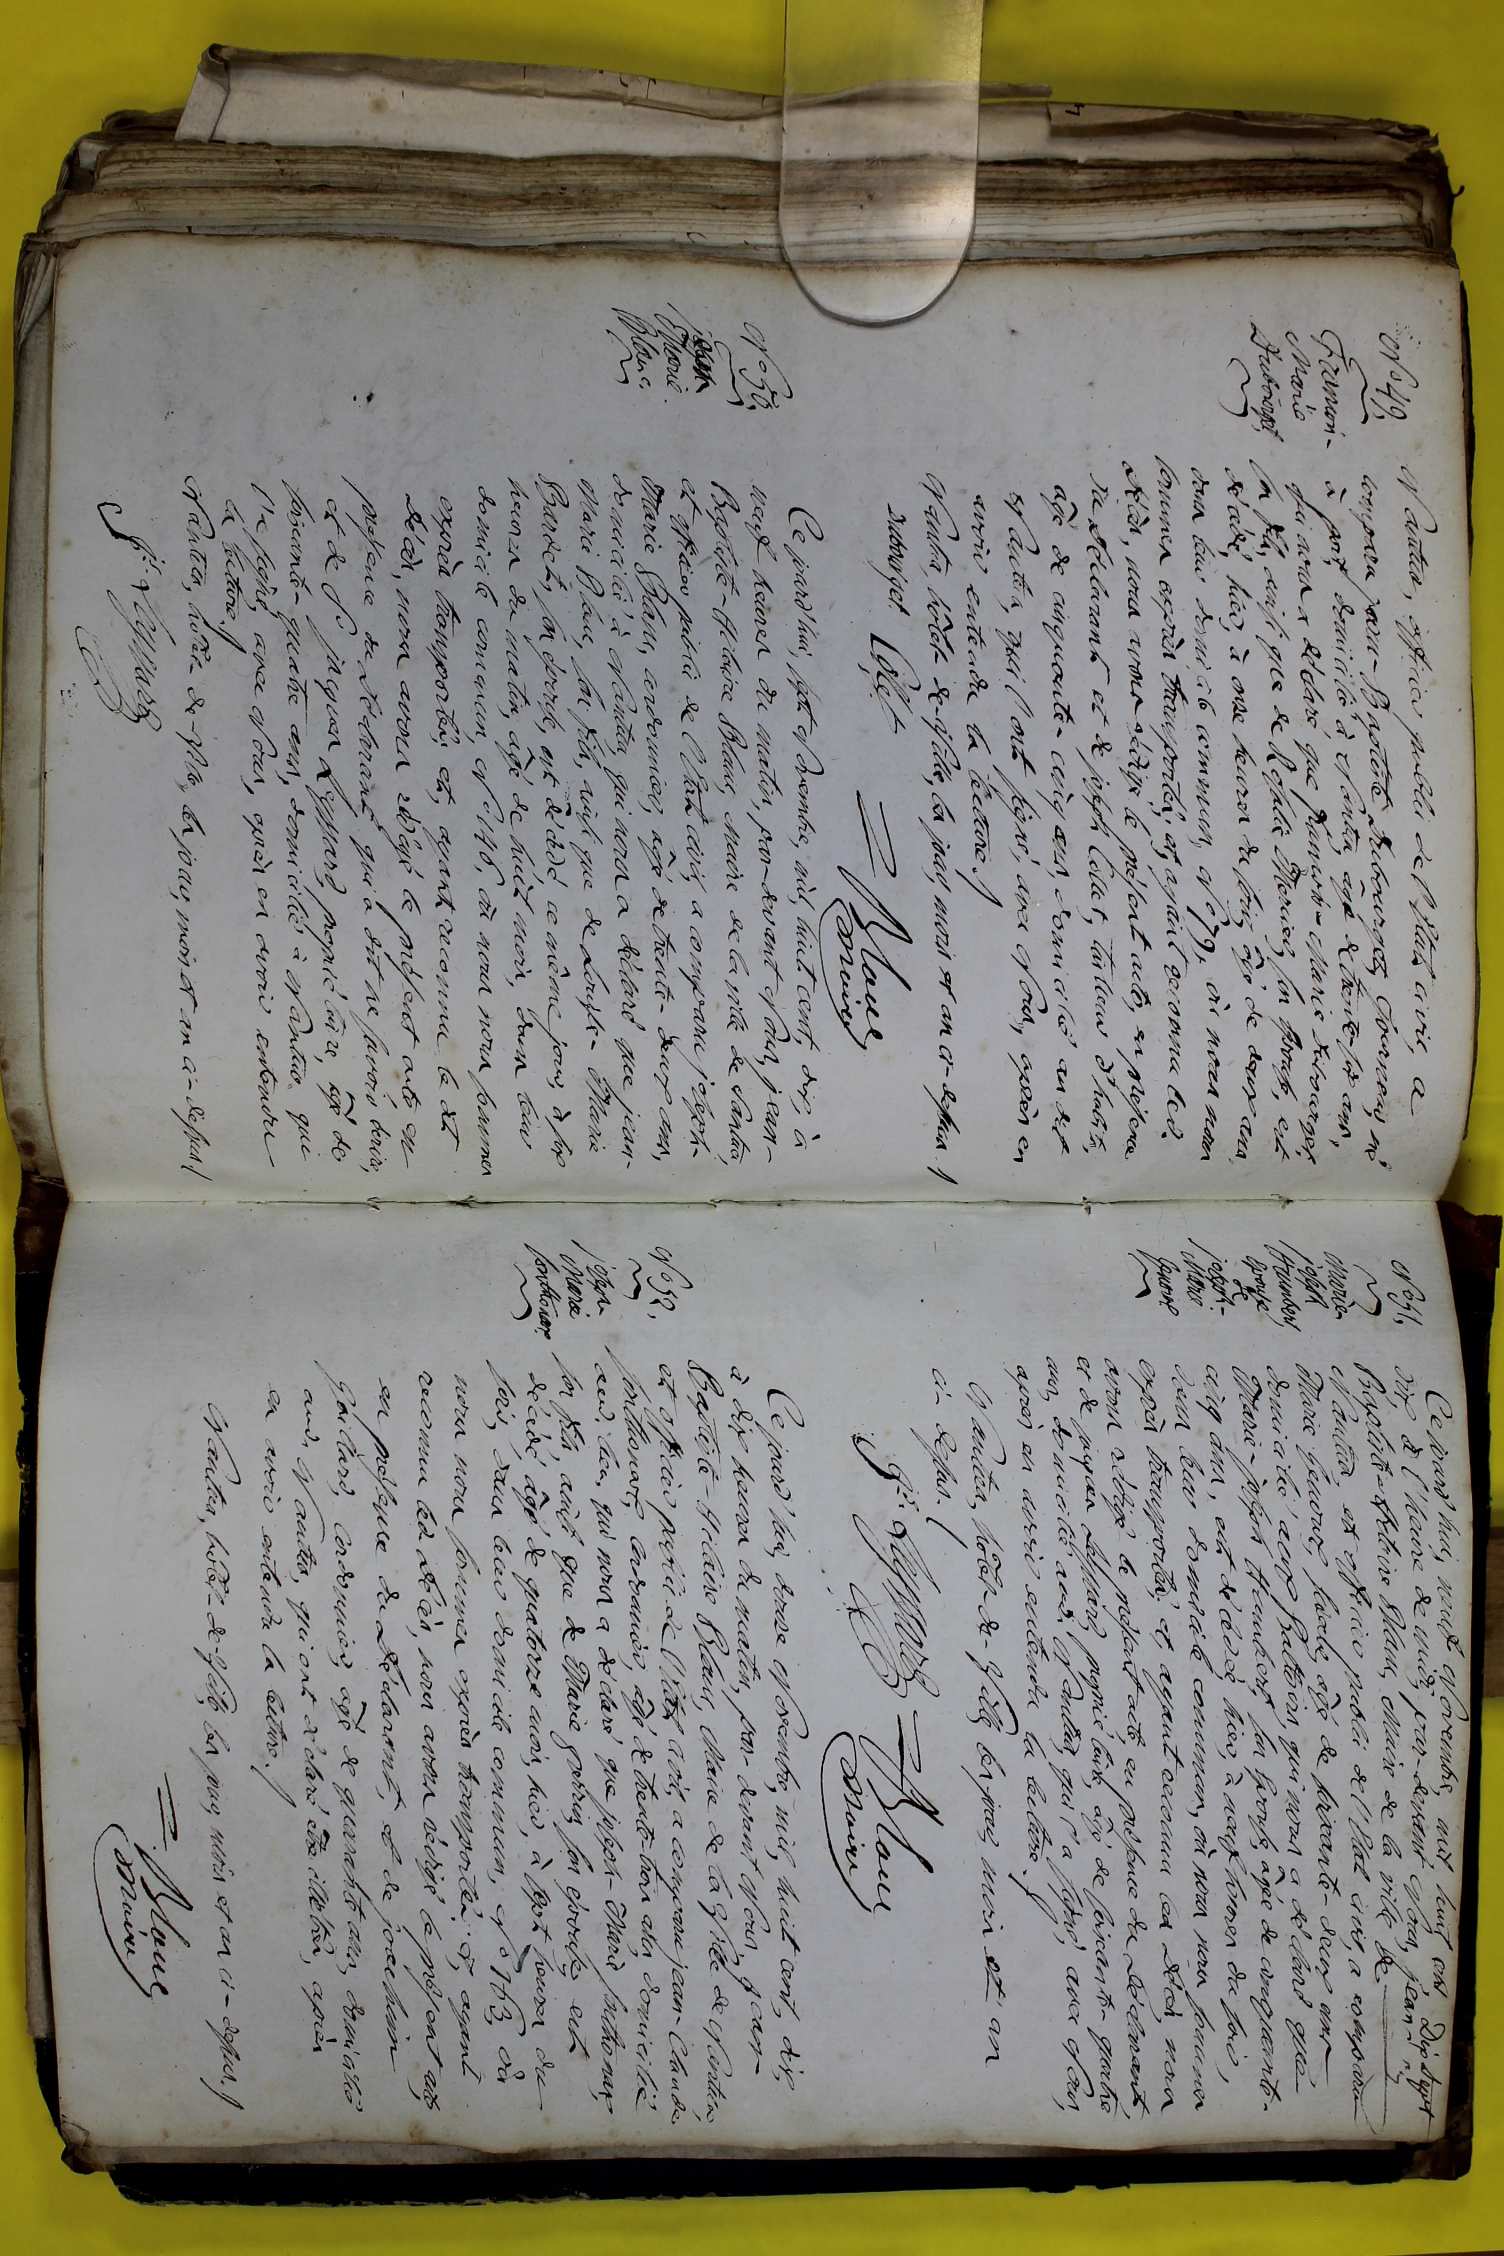 N.º 49,
François-
Marie
Dubourget,
Nantua, officier public de l'État civil, a
comparu jean-Baptiste Dubourget, Tourneur, né
à pont, domicilié à Nantua, âgé de trente six ans,
qui nous a déclaré que françois-Marie Dubourget,
son fils, ainsi que de Rosalie Mercier son Épouse, est
décédé, hier, à onze heures du soir, âgé de deux ans,
dans leur domicile commun, N.º 79, où nous nous
sommes exprès transportés, et, ayant reconnu led.
décès, nous avons rédigé le présent acte, en présence
du Déclarant et de joseph Collet, tailleur d'habits,
âgé de cinquante-cinq ans, domicilié au dit
Nantua, qui l'ont signé, avec Nous, après en
avoir entendu la lecture./
Nantua, hôtel-de-Ville, les jour, mois et an ci-dessus./
Dubourget Collet
Blanc
Maire
N.º 50,
joseph
Marie
Blanc,
Ce jourd'hui, sept Novembre, mil, huit cent, dix, à
neuf heures du matin, par-devant Nous, jean-
Baptiste-Hilaire Blanc, Maire de la ville de Nantua,
et officier public de l'État civil, a comparu joseph-
Marie Blanc, cordonnier, âgé de trente-deux ans,
domicilié à Nantua, qui nous a déclaré que jean-
Marie Blanc, son fils, ainsi que de Louise-Marie
Bandet, son épouse, est décédé ce même jour, à six
heures du matin, âgé de huit mois, dans leur
domicile commun, N.º 146, où nous nous sommes
exprès transportés, et, ayant reconnu le dit
décès, nous avons rédigé le présent acte en
présence du Déclarant qui a dit ne savoir écrire,
et de S.r jacques Leyssard, propriétaire, âgé de
soixante-quatre ans, domicilié à Nantua qui
l'a signé, avec Nous, après en avoir entendu
la lecture./
Nantua, hôtel-de-Ville, les jour, mois et an ci-dessus./
J.s Leyssard
N.º 51,
Marie
joseph
Humbert
Epouse
de
joseph-
Marie
Guerrier
Ce jourd'hui, neuf Novembre, mil huit cent Dix
à l'heure de midi, par-devant Nous, jean
Baptiste-Hilaire Blanc, Maire de la ville de
Nantua et officier public de l'État civil, a comparu
Marie Guerrier, âgé de soixante-deux ans
domicilié qui nous a déclaré que
Marie-joseph Humbert, son Epouse, âgée de cinquante-
cinq ans, est décédée hier, à neuf heures du soir,
dans leur domicile commun, où nous nous sommes
exprès transportés, et, ayant reconnu led. décès, nous
avons rédigé le présent acte en présence du Déclarant
et de jacques Leyssard, propriétaire, âgé de soixante-quatre
ans, domicilié aud. Nantua, qui l'a signé, avec Nous,
après en avoir entendu la lecture./
Nantua, hôtel-de-Ville, les jour, mois et an
ci-dessus./
J.s Leyssard
Blanc
Maire
N.º 52,
joseph-
Marie
Ce jourd'hui, douze Novembre, mil, huit cent, dix,
à dix heures du matin, par-devant Nous, jean-
Baptiste-Hilaire Blanc, Maire de la Ville de Nantua,
et officier public de l'État civil, a comparu jean-Claude
cordonnier, âgé de trente-trois ans, domicilié
aud. lieu, qui nous a déclaré que joseph-Marie
son fils, ainsi que de Marie perrin, son épouse, est
décédé, âgé de quatorze mois, hier, à sept heures du
soir, dans leur domicile commun, N.º 163, où
nous nous sommes exprès transportés, et, ayant
reconnu led. décès, nous avons rédigé le présent acte,
en présence du Déclarant, et de joachim
cordonnier, âgé de quarante ans, domicilié
aud. Nantua, qui ont déclaré être illitérés, après
en avoir entendu la lecture./
Nantua, hôtel-de-Ville, les jour, mois et an ci-dessus./
Blanc
Maire